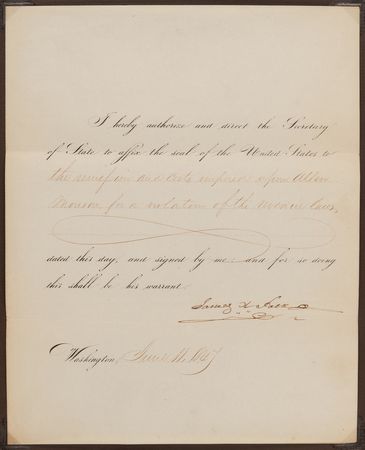 I hereby authorize and direct the Secretary
of State to affix the seal of the United States to
the remission and costs imposed upon
for a violation of the Revenue laws,
dated this day, and signed by me: and for so doing
this shall be his warrant.
James K Polk
Washington, June 11, 1847